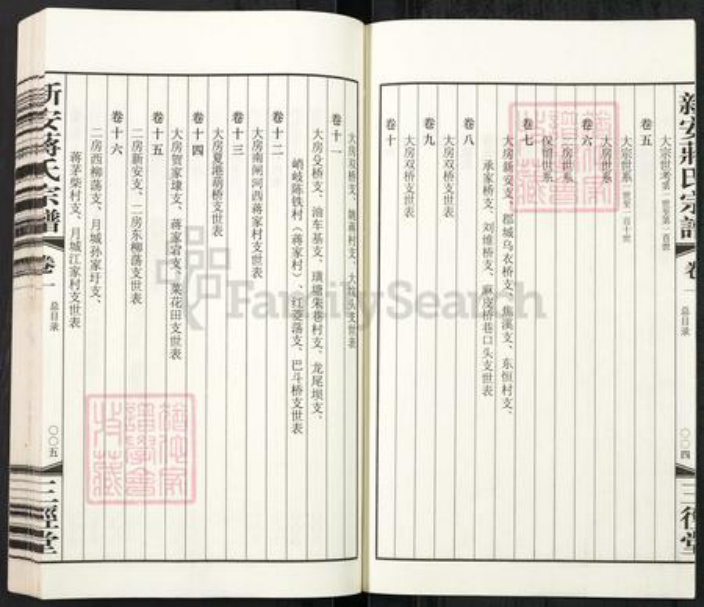 新安蒋氏宗谱
卷一
总目录
〇〇四
三径堂
大宗世考第一世至第一百世
卷五
大宗世系一世至一百十世
卷六
大房世系
二房世系
保留世系
卷七
大房新安支、郡城乌衣桥支、焦溪支、东恒村支、
承家桥支、刘维桥支、麻皮桥巷口头支世表
卷八
大房双桥支世表
卷九
大房双桥支世表
卷十
大房双桥支、姚蒋村支、大坟头支世表
卷十一
大房殳桥支、油车基支、璜塘朱巷村支、龙尾坝支、
峭岐陈铁村（蒋家村）、红菱荡支、巴斗桥支世表
卷十二
大房南闸河西蒋家村支世表
卷十三
大房夏港葫桥支世表
卷十四
大房贺家埭支、蒋家宕支、菜花田支世表
卷十五
二房新安支、二房东柳荡支世表
卷十六
二房西柳荡支、月城孙家圩支、
蒋茅柴村支、月城江家村支世表
新安蒋氏宗谱
卷一
总目录
〇〇五
三径堂
FamilySearch